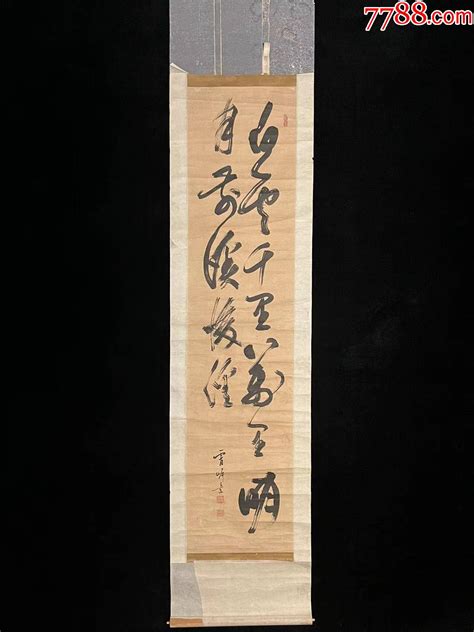 7788.com
白雲千里萬里明
月前溪後溪